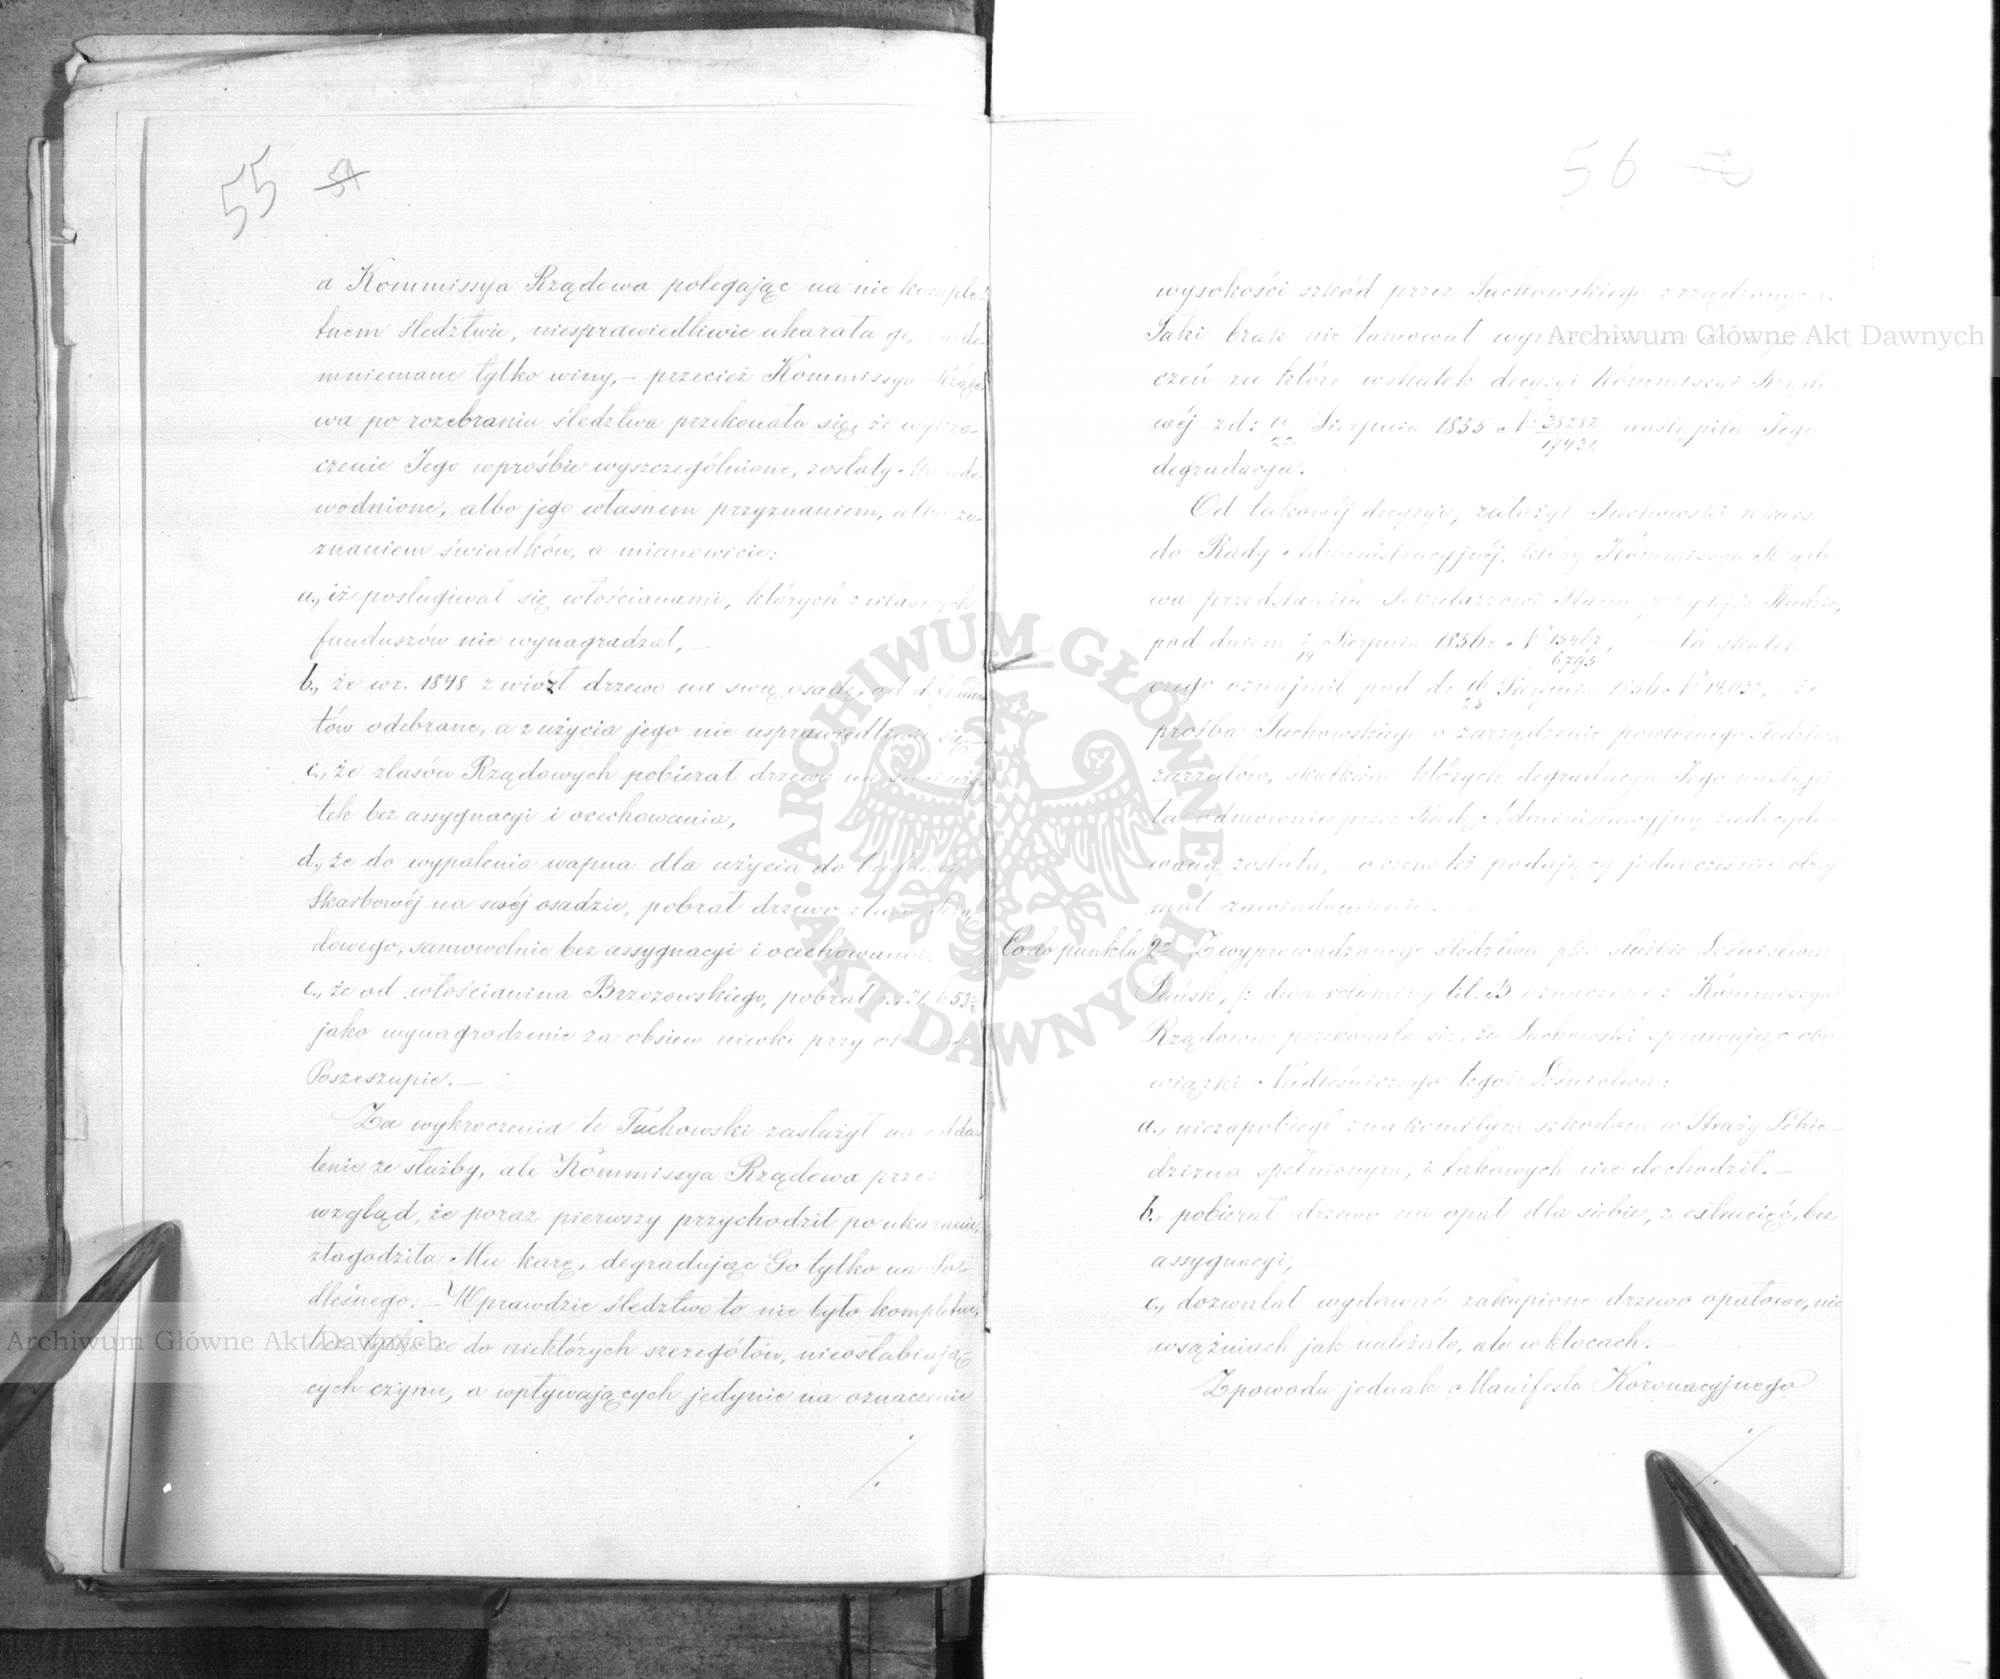 55 54
a Kommissya Rządowa polegając na nie komple-
tnem śledztwie, niesprawiedliwie ukarała go, za do-
mniemane tylko winy, – przecież Kommissya Rządo-
wa po rozebraniu śledztwa przekonała się, że wykro-
czenie Jego w prośbie wyszczególnione, zostały udo-
wodnione, albo jego własnem przyznaniem, albo ze-
znaniem świadków, a mianowicie:
a., iż posługiwał się włościanami, których z własnych
funduszów nie wynagradzał, –
b., że w r. 1848 zwiózł drzewo na swą osadę, od defraudan
tów odebrane, a z użycia jego nie usprawiedliwił się, –
c., że z lasów Rządowych pobierał drzewo na swój uży-
tek bez assygnacyi i ocechowania,
d., że do wypalenia wapna dla użycia do budowli
Skarbowéj na swéj osadzie, pobrał drzewo z lasu Rzą-
dowego, samowolnie bez assygnacyi i ocechowania,
e., że od włościanina Brzozowskiego, pobrał rs. 21, k. 53½
jako wynagrodzenie za obsiew niwki przy osadzie
Poszeszupie. –
Za wykroczenia te Tuchowski zasłużył na odda-
lenie ze służby, ale Kommissya Rządowa przez
wzgląd, że poraz pierwszy przychodził po ukaranie,
złagodziła Mu karę, degradując Go tylko na Po-
dleśnego. – Wprawdzie śledztwo to nie było kompletne,
lecz tylko co do niektórych szczegółów, nieosłabiają-
cych czynu, a wpływających jedynie na oznaczenie
./.
56
wysokości szkód przez Tuchowskiego zrządzonych.
Taki brak nie tamował
czeń za które wskutek decyzyi Kommissyi Rządo
wéj z d: 10/22 Sierpnia 1855 N° 38282/17431 nastąpiła Jego
degradacya. –
Od takowéj decyzyi, założył Tuchowski rekurs
do Rady Administracyjnéj, który Kommissya Rządo
wa przedstawiła Sekretarzowi Stanu przy tejże Radzie,
pod dniem 2/14 Sierpnia 1856 r. N° 15467/6795, Na skutek
czego oznajmił pod d: 16/28 Sierpnia 1856 N° 14.037, że
prośba Tuchowskiego o zarządzenie powtórnego śledztwa
zarzutów, skutkiem których degradacya Jego nastąpi-
ła odmownie przez Radę Administracyjną zadecydo-
waną została, o czem też podający jednocześnie otrzy
mał zawiadomienie.
Co do punktu 2° Z wyprowadzonego śledztwa pko służbie Leśnictwa
Puńsk, /: dwa voluminy lit. B oznaczone: Kommissya
Rządowa przekonała się, że Tuchowski sprawując obo
wiązki Nadleśniczego tegoż Leśnictwa:
a., niezapobiegł znakomitym szkodom w Straży Lebie-
dzizna spełnionym, i takowych nie dochodził. –
b., pobierał drzewo na opał dla siebie, z ostrucięć, bez
assygnacyi, –
c., dozwalał wydawać zakupione drzewo opałowe, nie
w sążniach jak należało, ale w klocach. –
Z powodu jednak Manifestu Koronacyjnego
./.
Archiwum Główne Akt Dawnych
Archiwum Główne Akt Dawnych
ARCHIWUM GŁÓWNE AKT DAWNYCH